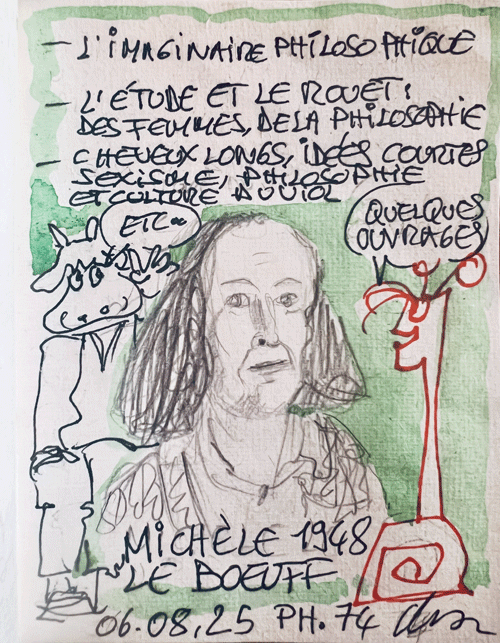 — L'IMAGINAIRE PHILOSOPHIQUE
— L'ÉTUDE ET LE ROUET:
DES FEMMES, DE LA PHILOSOPHIE
— CHEVEUX LONGS, IDÉES COURTES
SEXISME, PHILOSOPHIE
ET CULTURE DU VIOL
ETC
QUELQUES
OUVRAGES
MICHÈLE 1948
LE BOEUFF
06.08.25 PH. 74